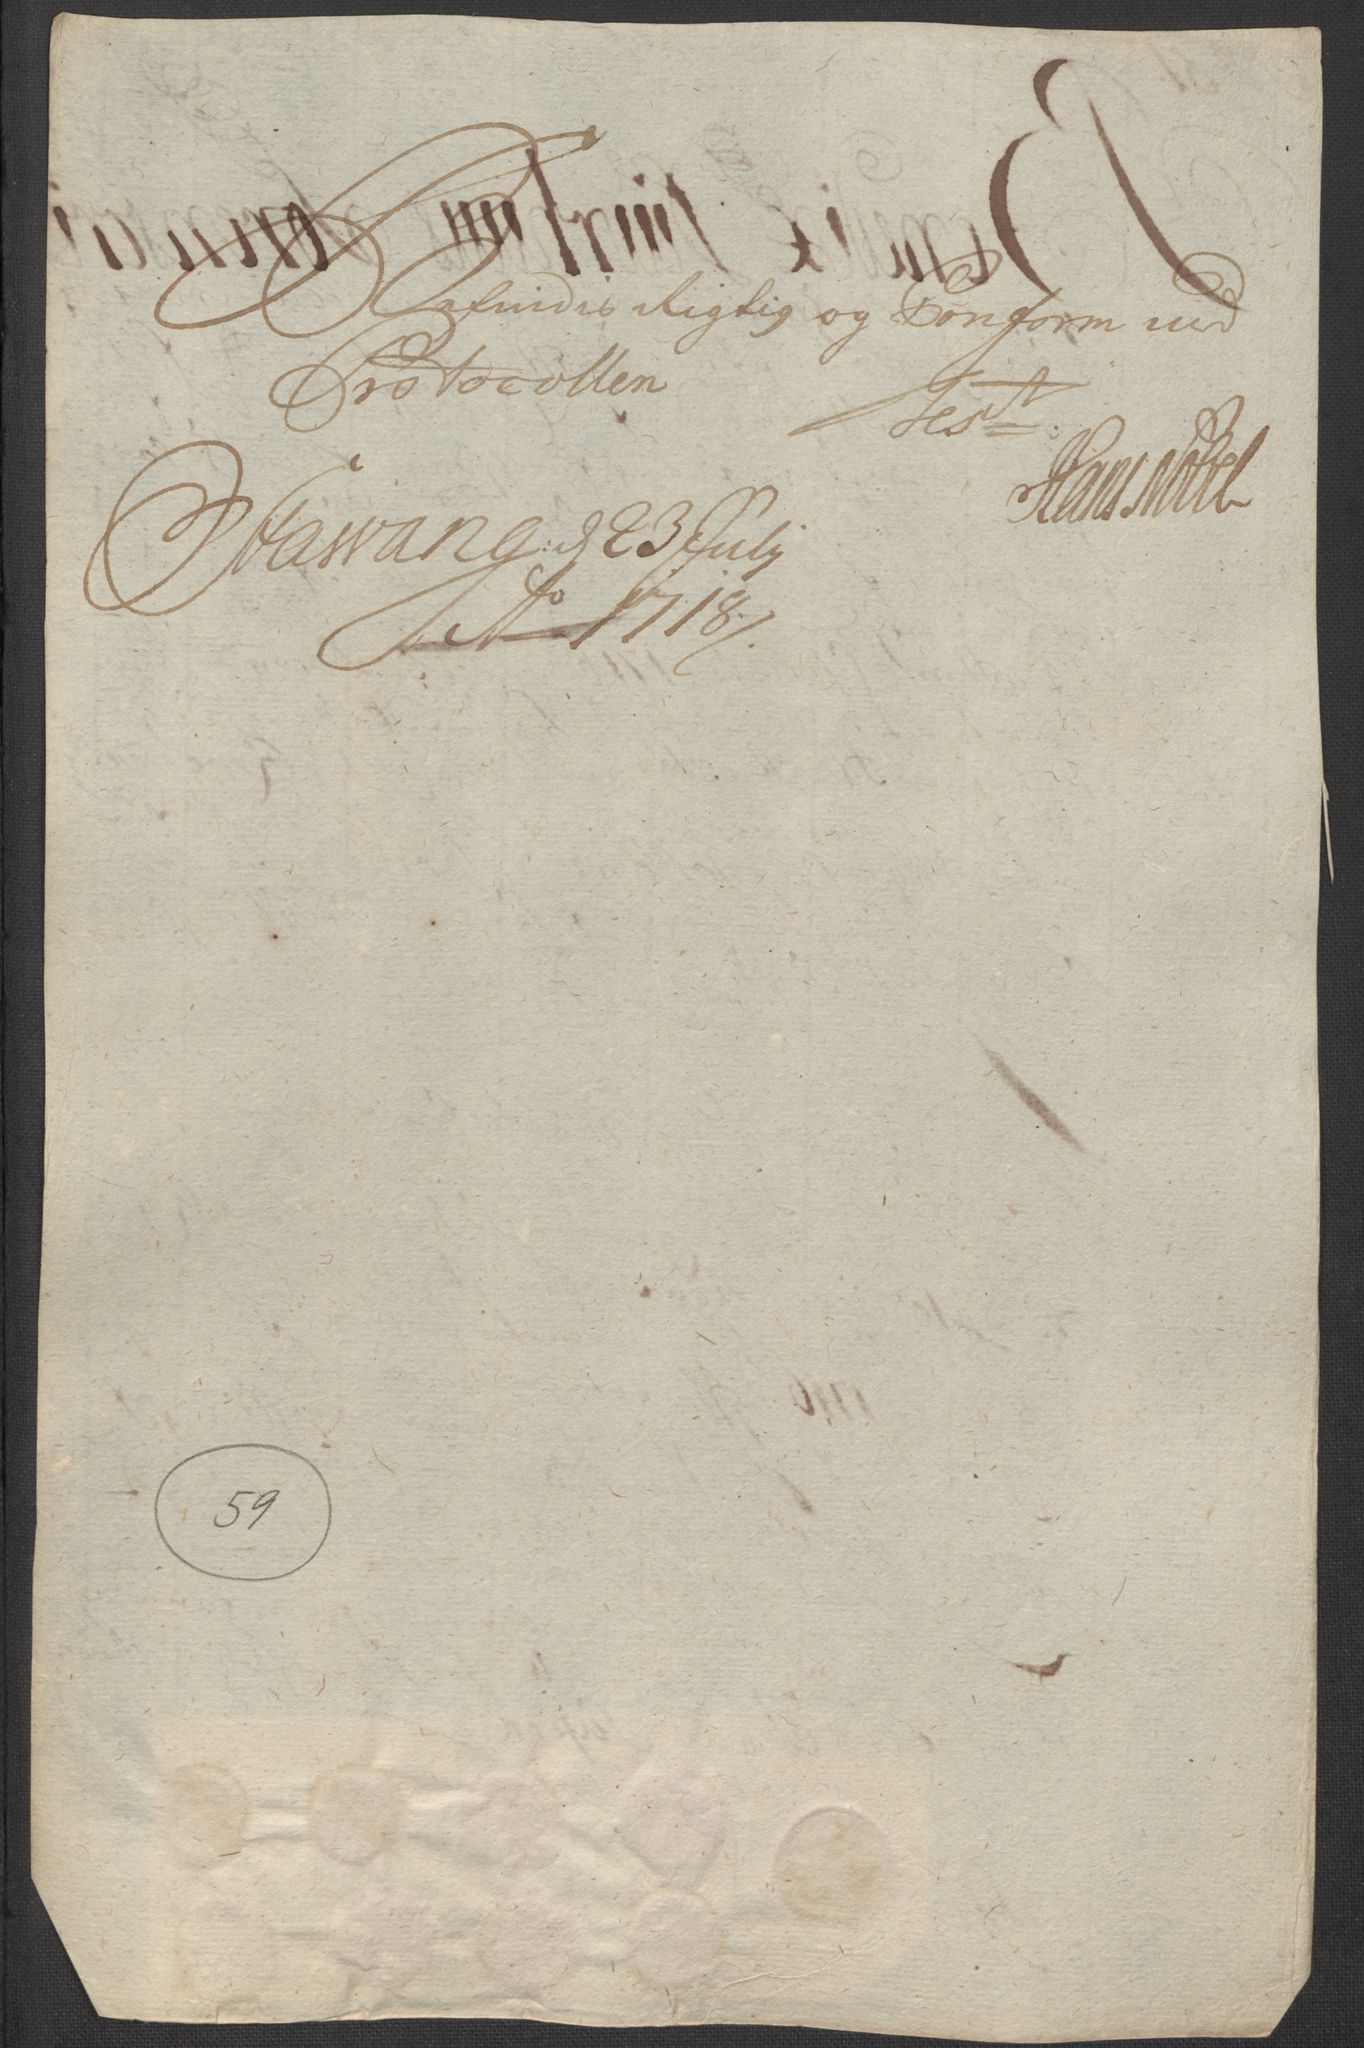 Befindis Rigtig og Conform med
Protocollen
Test:
Hans Nobel
Stawang: d 23 July
Ao 1718
59